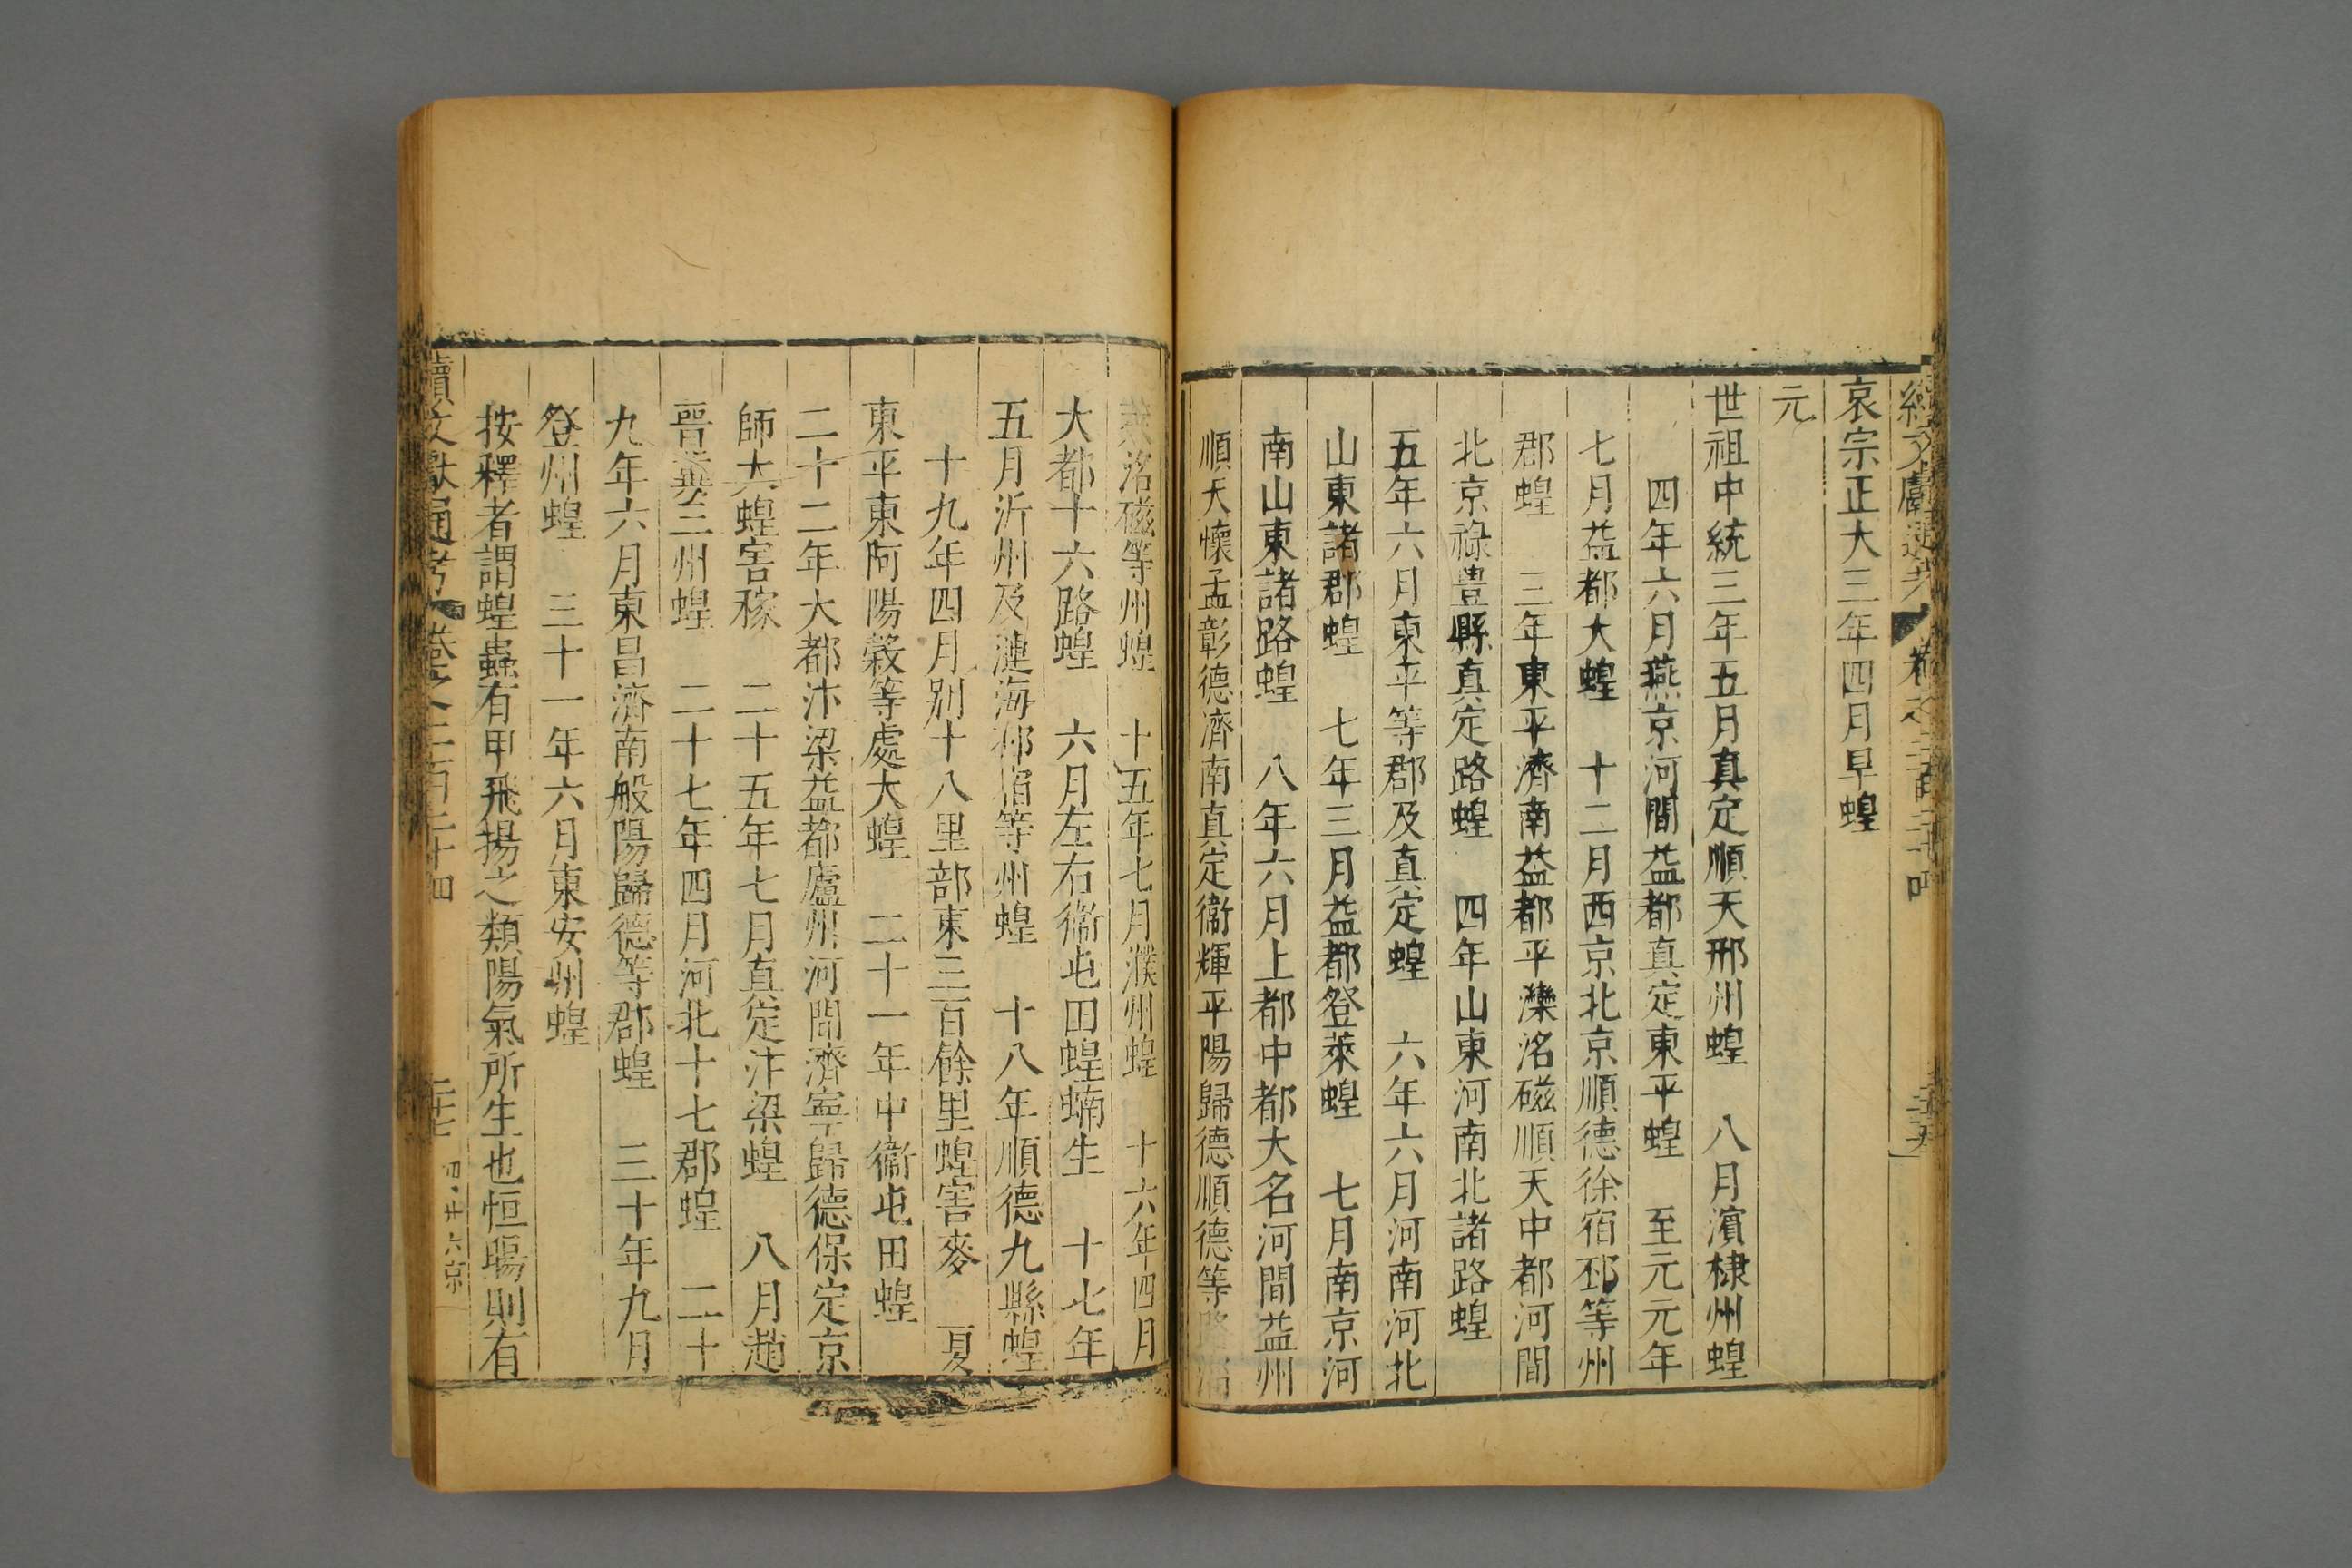 續文獻通考 卷之二百二十四
哀宗正大三年四月旱蝗
元
世祖中統三年五月真定順天邢州蝗 八月濱棣州蝗
四年六月燕京河間益都真定東平蝗 至元元年
七月益都大蝗 十二月西京北京順德徐宿邳等州
郡蝗 三年東平濟南益都平灤洺磁順天中都河間
北京祿豊縣真定路蝗 四年山東河南北諸路蝗
五年六月東平等郡及真定蝗 六年六月河南河北
山東諸郡蝗 七年三月益都登萊蝗 七月南京河
南山東諸路蝗 八年六月上都中都大名河間益州
順天懷孟彰德濟南真定衞輝平陽歸德順德等路淄
萊洺磁等州蝗 十五年七月濮州蝗 十六年四月
大都十六路蝗 六月左右衞屯田蝗蝻生 十七年
五月沂州及漣海邳宿等州蝗 十八年順德九縣蝗
十九年四月别十八里部東三百餘里蝗害麥 夏
東平東阿陽榖等處大蝗 二十一年中衞屯田蝗
二十二年大都汴梁益都廬州河間濟寧歸德保定京
師大蝗害稼 二十五年七月真定汴梁蝗 八月趙
晉冀三州蝗 二十七年四月河北十七郡蝗 二十
九年六月東昌濟南般陽歸德等郡蝗 三十年九月
登州蝗 三十一年六月東安州蝗
按釋者謂蝗蟲有甲飛揚之類陽氣所生也恒暘則有
續文獻通考 卷之二百二十四 二十七